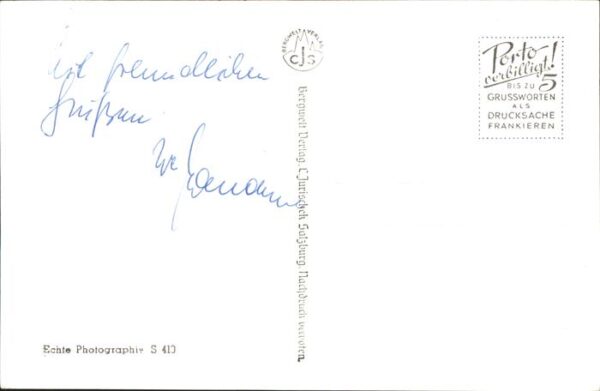 Mit freundlichen
Grüßen
BERGWELT VERLAG
CJS
Bergwelt Verlag, C. Jurischek Salzburg. Nachdruck verboten.
Porto
verbilligt!
BIS ZU 5
GRUSSWORTEN
ALS
DRUCKSACHE
FRANKIEREN
Echte Photographie S 413